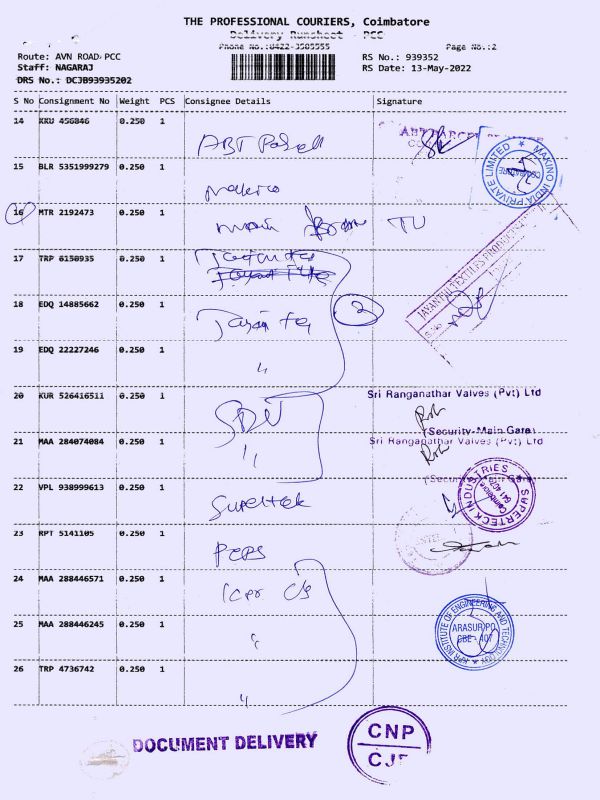 THE PROFESSIONAL COURIERS, Coimbatore
Delivery Runsheet - PCC
Phone No.:0422-3505555
Page No.:2
Route: AVN ROAD PCC
RS No.: 939352
Staff: NAGARAJ
RS Date: 13-May-2022
DRS No.: DCJB93935202
S No Consignment No Weight PCS Consignee Details Signature
14 KKU 456846 0.250 1
ABT
15 BLR 5351999279 0.250 1
MAKINO INDIA PRIVATE LIMITED
COIMBATORE
16 MTR 2192473 0.250 1
17 TRP 6158935 0.250 1
18 EDQ 14885662 0.250 1
3
19 EDQ 22227246 0.250 1
"
20 KUR 526416511 0.250 1
Sri Ranganathar Valves (Pvt) Ltd
(Security-Main Gate)
21 MAA 284074084 0.250 1
Sri Ranganathar Valves (Pvt) Ltd
"
22 VPL 938999613 0.250 1
Supertek
SUPERTECK INDUSTRIES
Coimbatore
23 RPT 5141105 0.250 1
24 MAA 288446571 0.250 1
25 MAA 288446245 0.250 1
"
KPR INSTITUTE OF ENGINEERING AND TECHNOLOGY
ARASUR PO
CBE - 407
26 TRP 4736742 0.250 1
"
DOCUMENT DELIVERY
CNP
CJE